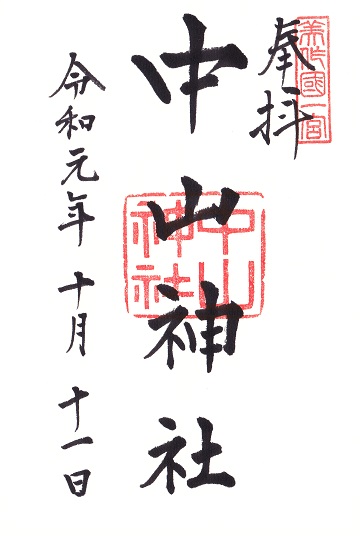 美作國一宮
奉拝
中山神社
中山神社
令和元年十月十一日